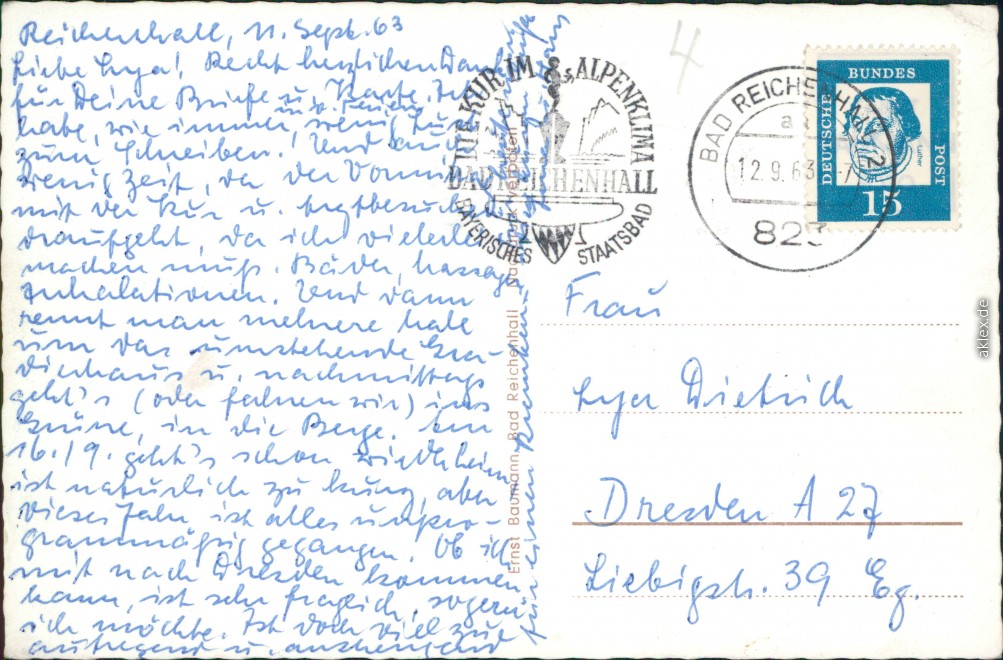 Reichenhall, 11. Sept. 63
Liebe Inga! Recht herzlichen Dank
für Deine Briefe u. Karte. Ich
u. v. Ferien
habe, wie immer, wenig Lust
zum Schreiben. Und auch
wenig Zeit, da der Vormittag
mit der Kur u. Arztbesuchen
draufgeht, da ich vielerlei
machen muß. Bäder, Massage
Inhalationen. Und dann
rennt man mehrere Male
um das umstehende Gra-
dierhaus u. nachmittags
geht's (oder fahren wir) ins
Grüne, in die Berge. Am
16./9. geht's schon wieder heim
ist natürlich zu kurz, aber
dieses Jahr ist alles unpro-
grammäßig gegangen. Ob ich
mit nach Dresden kommen
kann, ist sehr fraglich, so gern
ich möchte. Ist doch viel zu
aufregend u. anstrengend
für einen Kranken
Ernst Baumann, Bad Reichenhall Nachdruck verboten
DIE KUR IM ALPENKLIMA
BAD REICHENHALL
BAYERISCHES STAATSBAD
4
BAD REICHENHALL 2
a
12.9.63-7
823
DEUTSCHE BUNDES POST
Luther
15
Frau
Inga Dietrich
Dresden A 27
Liebigstr. 39 Eg.
aklex.de